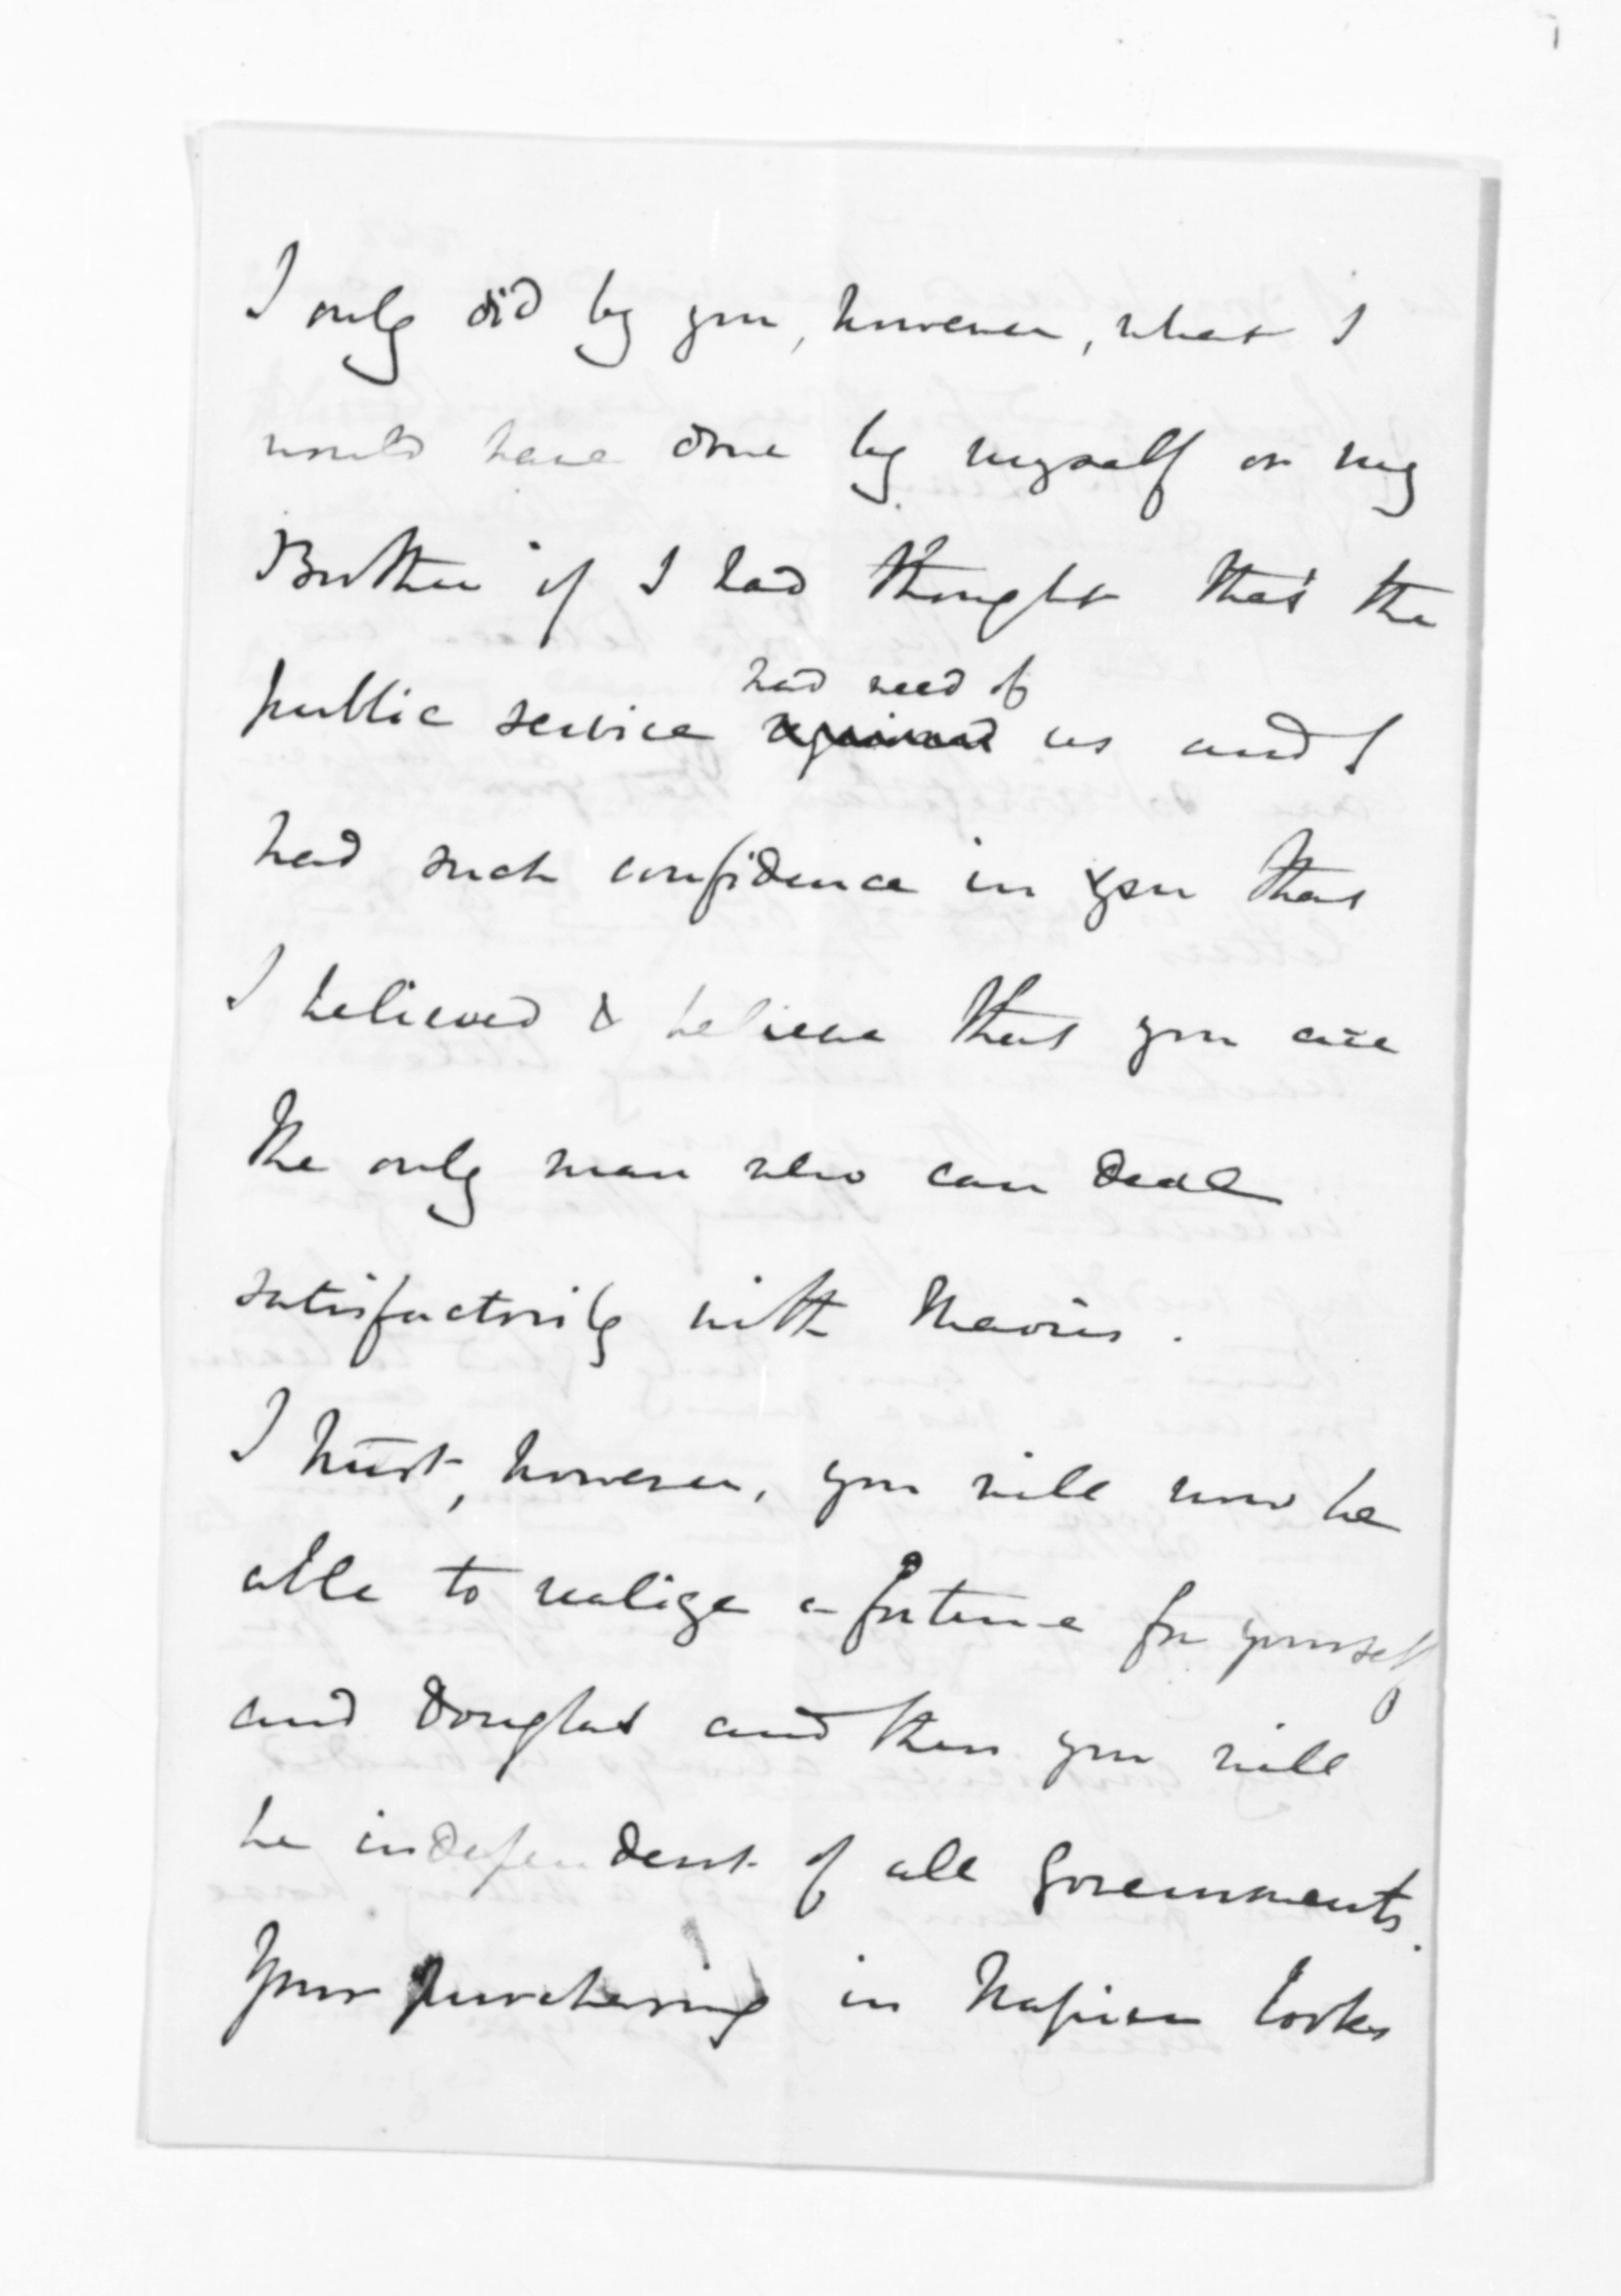 I only did by you, however, what I
would have done by myself or my
Brother if I had thought that the
public service had need of us and I
had such confidence in you that
I believed & believe that you are
the only man who can deal
satisfactorily with Maoris.
I trust, however, you will now be
able to realize a fortune for yourself
and Douglas and then you will
be independent of all Governments.
Your purchasing in Napier looks